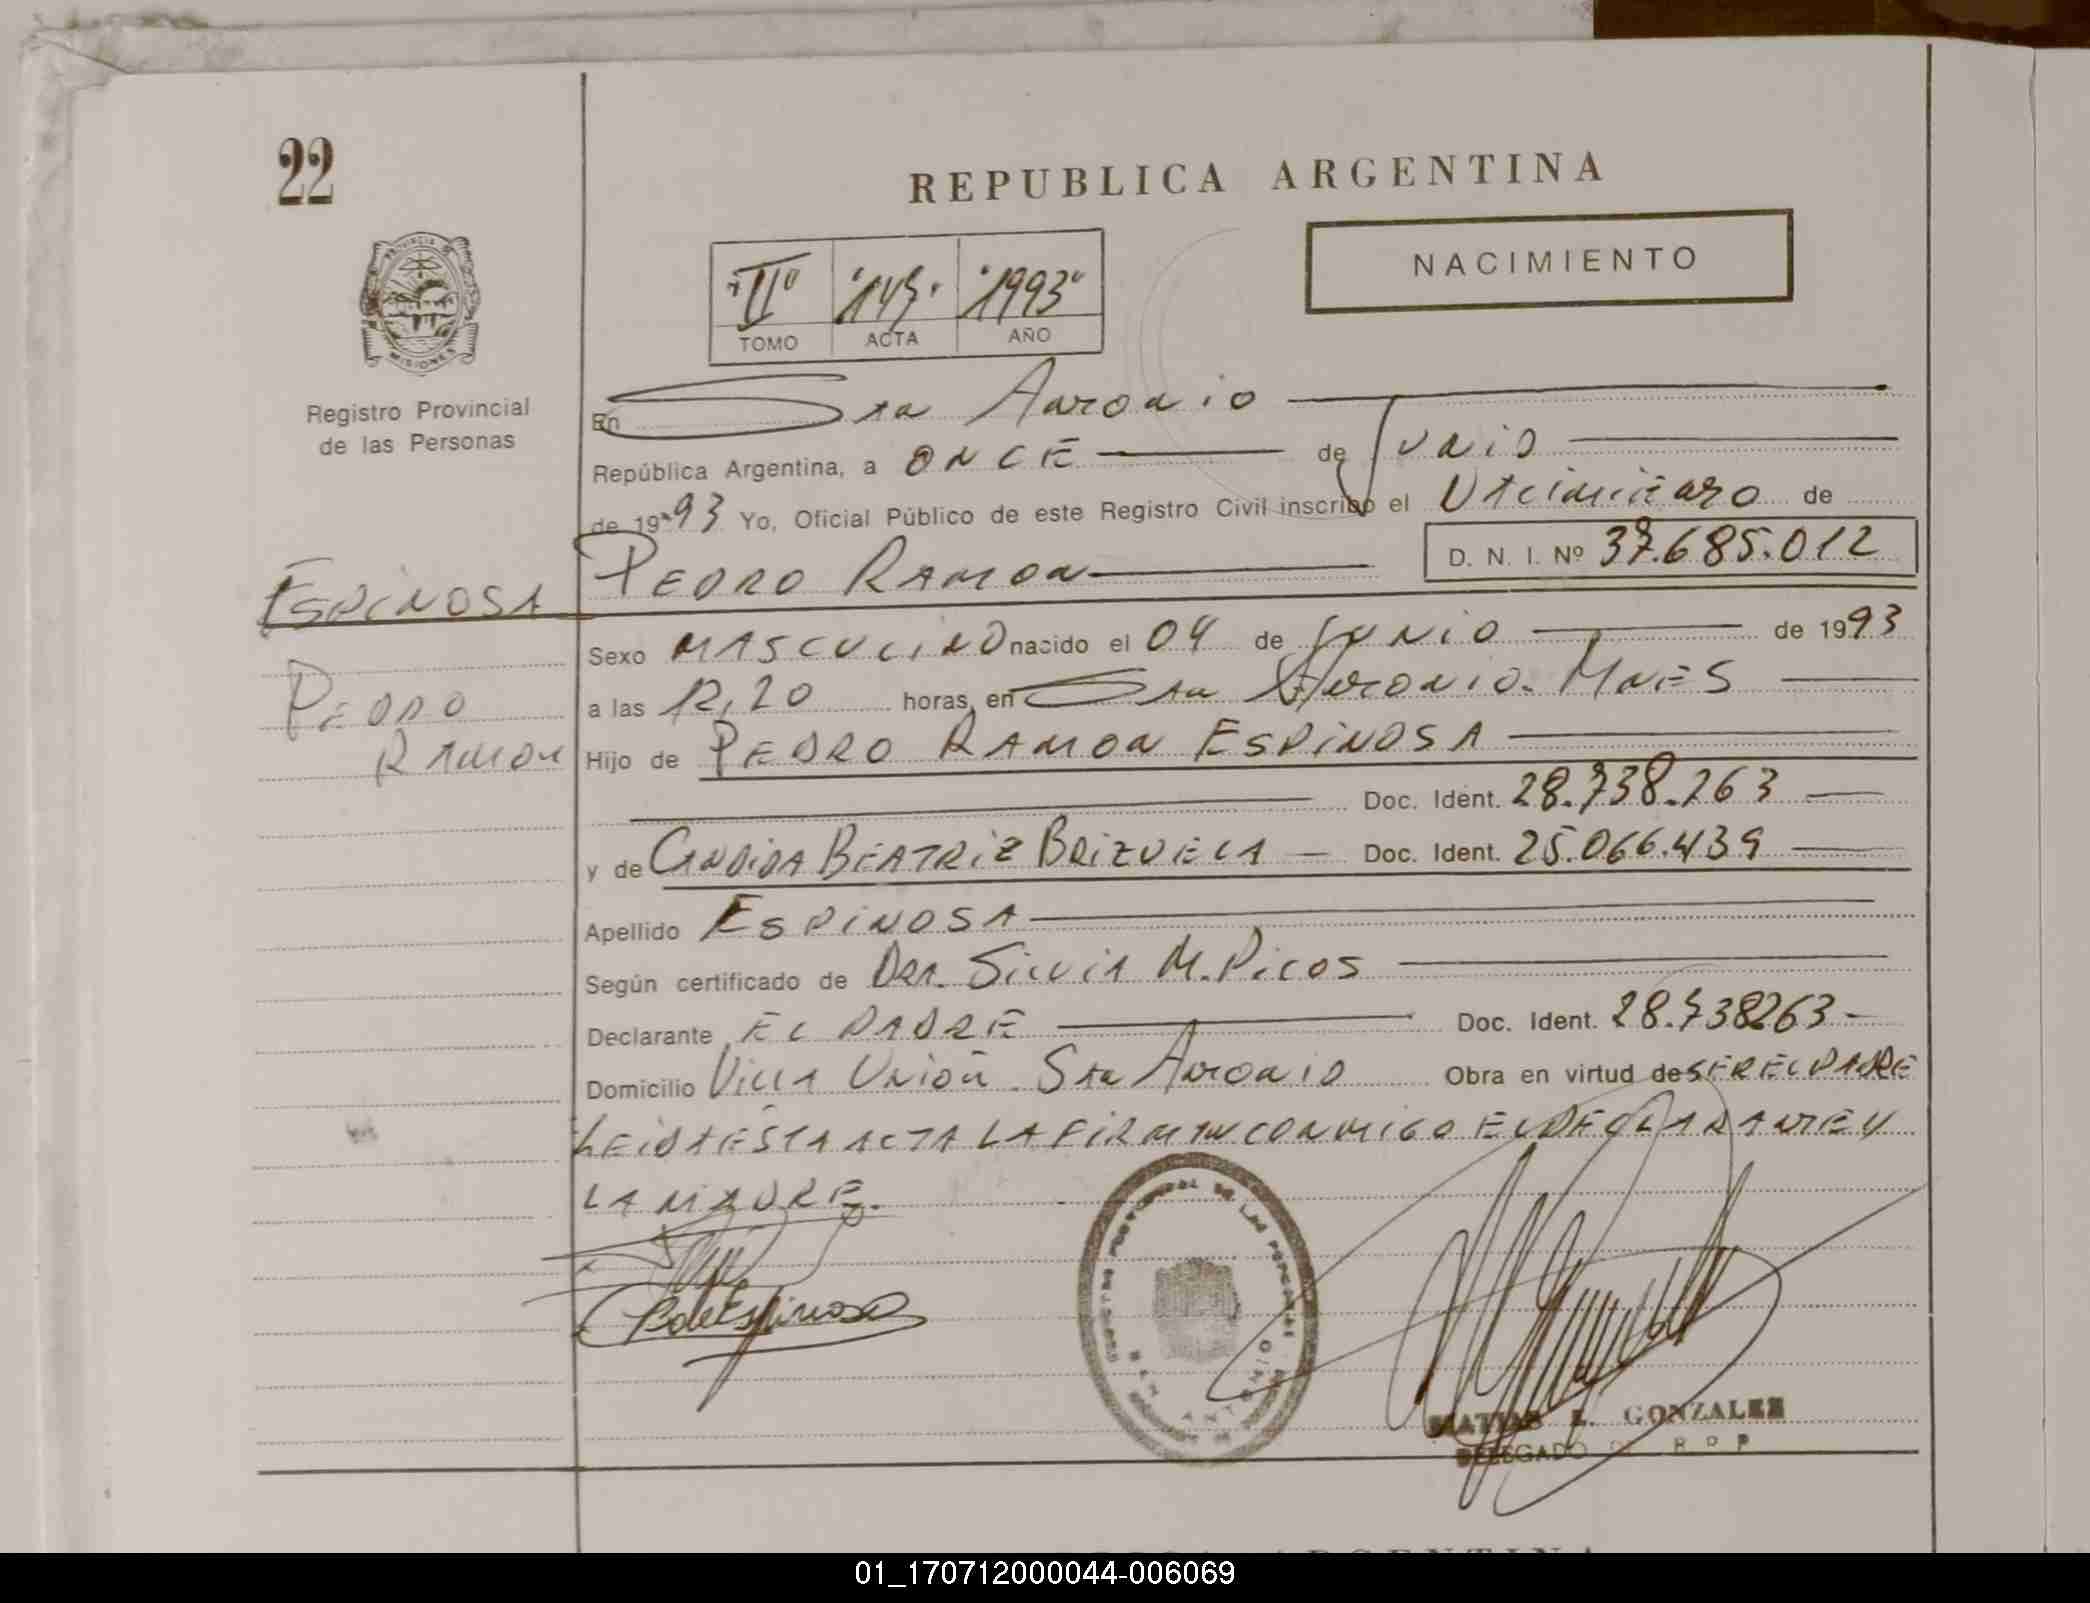 22
REPUBLICA ARGENTINA
NACIMIENTO
"II" "145" "1993"
TOMO ACTA AÑO
PROVINCIA DE MISIONES
Registro Provincial
de las Personas
En San Antonio
República Argentina, a ONCE de Junio
de 1993 Yo, Oficial Público de este Registro Civil inscribo el Nacimiento de
D. N. I. Nº 37.685.012
PEDRO RAMON
ESPINOSA
PEDRO
RAMON
Sexo MASCULINO nacido el 04 de JUNIO de 1993
a las 12,20 horas, en San Antonio. MNES
Hijo de PEDRO RAMON ESPINOSA
Doc. Ident. 28.738.263
y de CANDIDA BEATRIZ BRIZUELA Doc. Ident. 25.066.439
Apellido ESPINOSA
Según certificado de DRA. Silvia M. Picos
Declarante EL PADRE Doc. Ident. 28.738263
Domicilio Villa Unión San Antonio Obra en virtud de SER EL PADRE
LEIDA ESTA ACTA LA FIRMAN CONMIGO EL DECLARANTE Y
LA MADRE.
Espinosa
SAN ANTONIO
MATIAS E. GONZALEZ
DELEGADO R P P
01_170712000044-006069